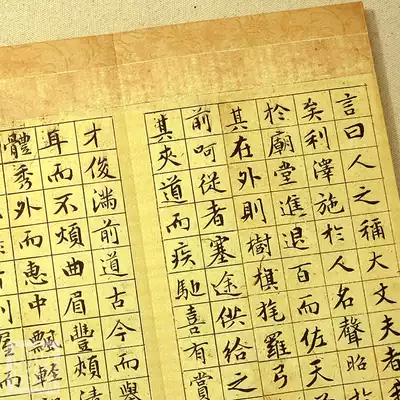 言曰人之稱大丈夫者
矣利澤施於人名聲昭
於廟堂進退百而佐天
其在外則樹旗旄羅弓
前呵從者塞途供給之
其夾道而疾馳喜有賞
才俊滿前道古今而譽
耳而不煩曲眉豐頰清
體秀外而惠中飄輕
屋而